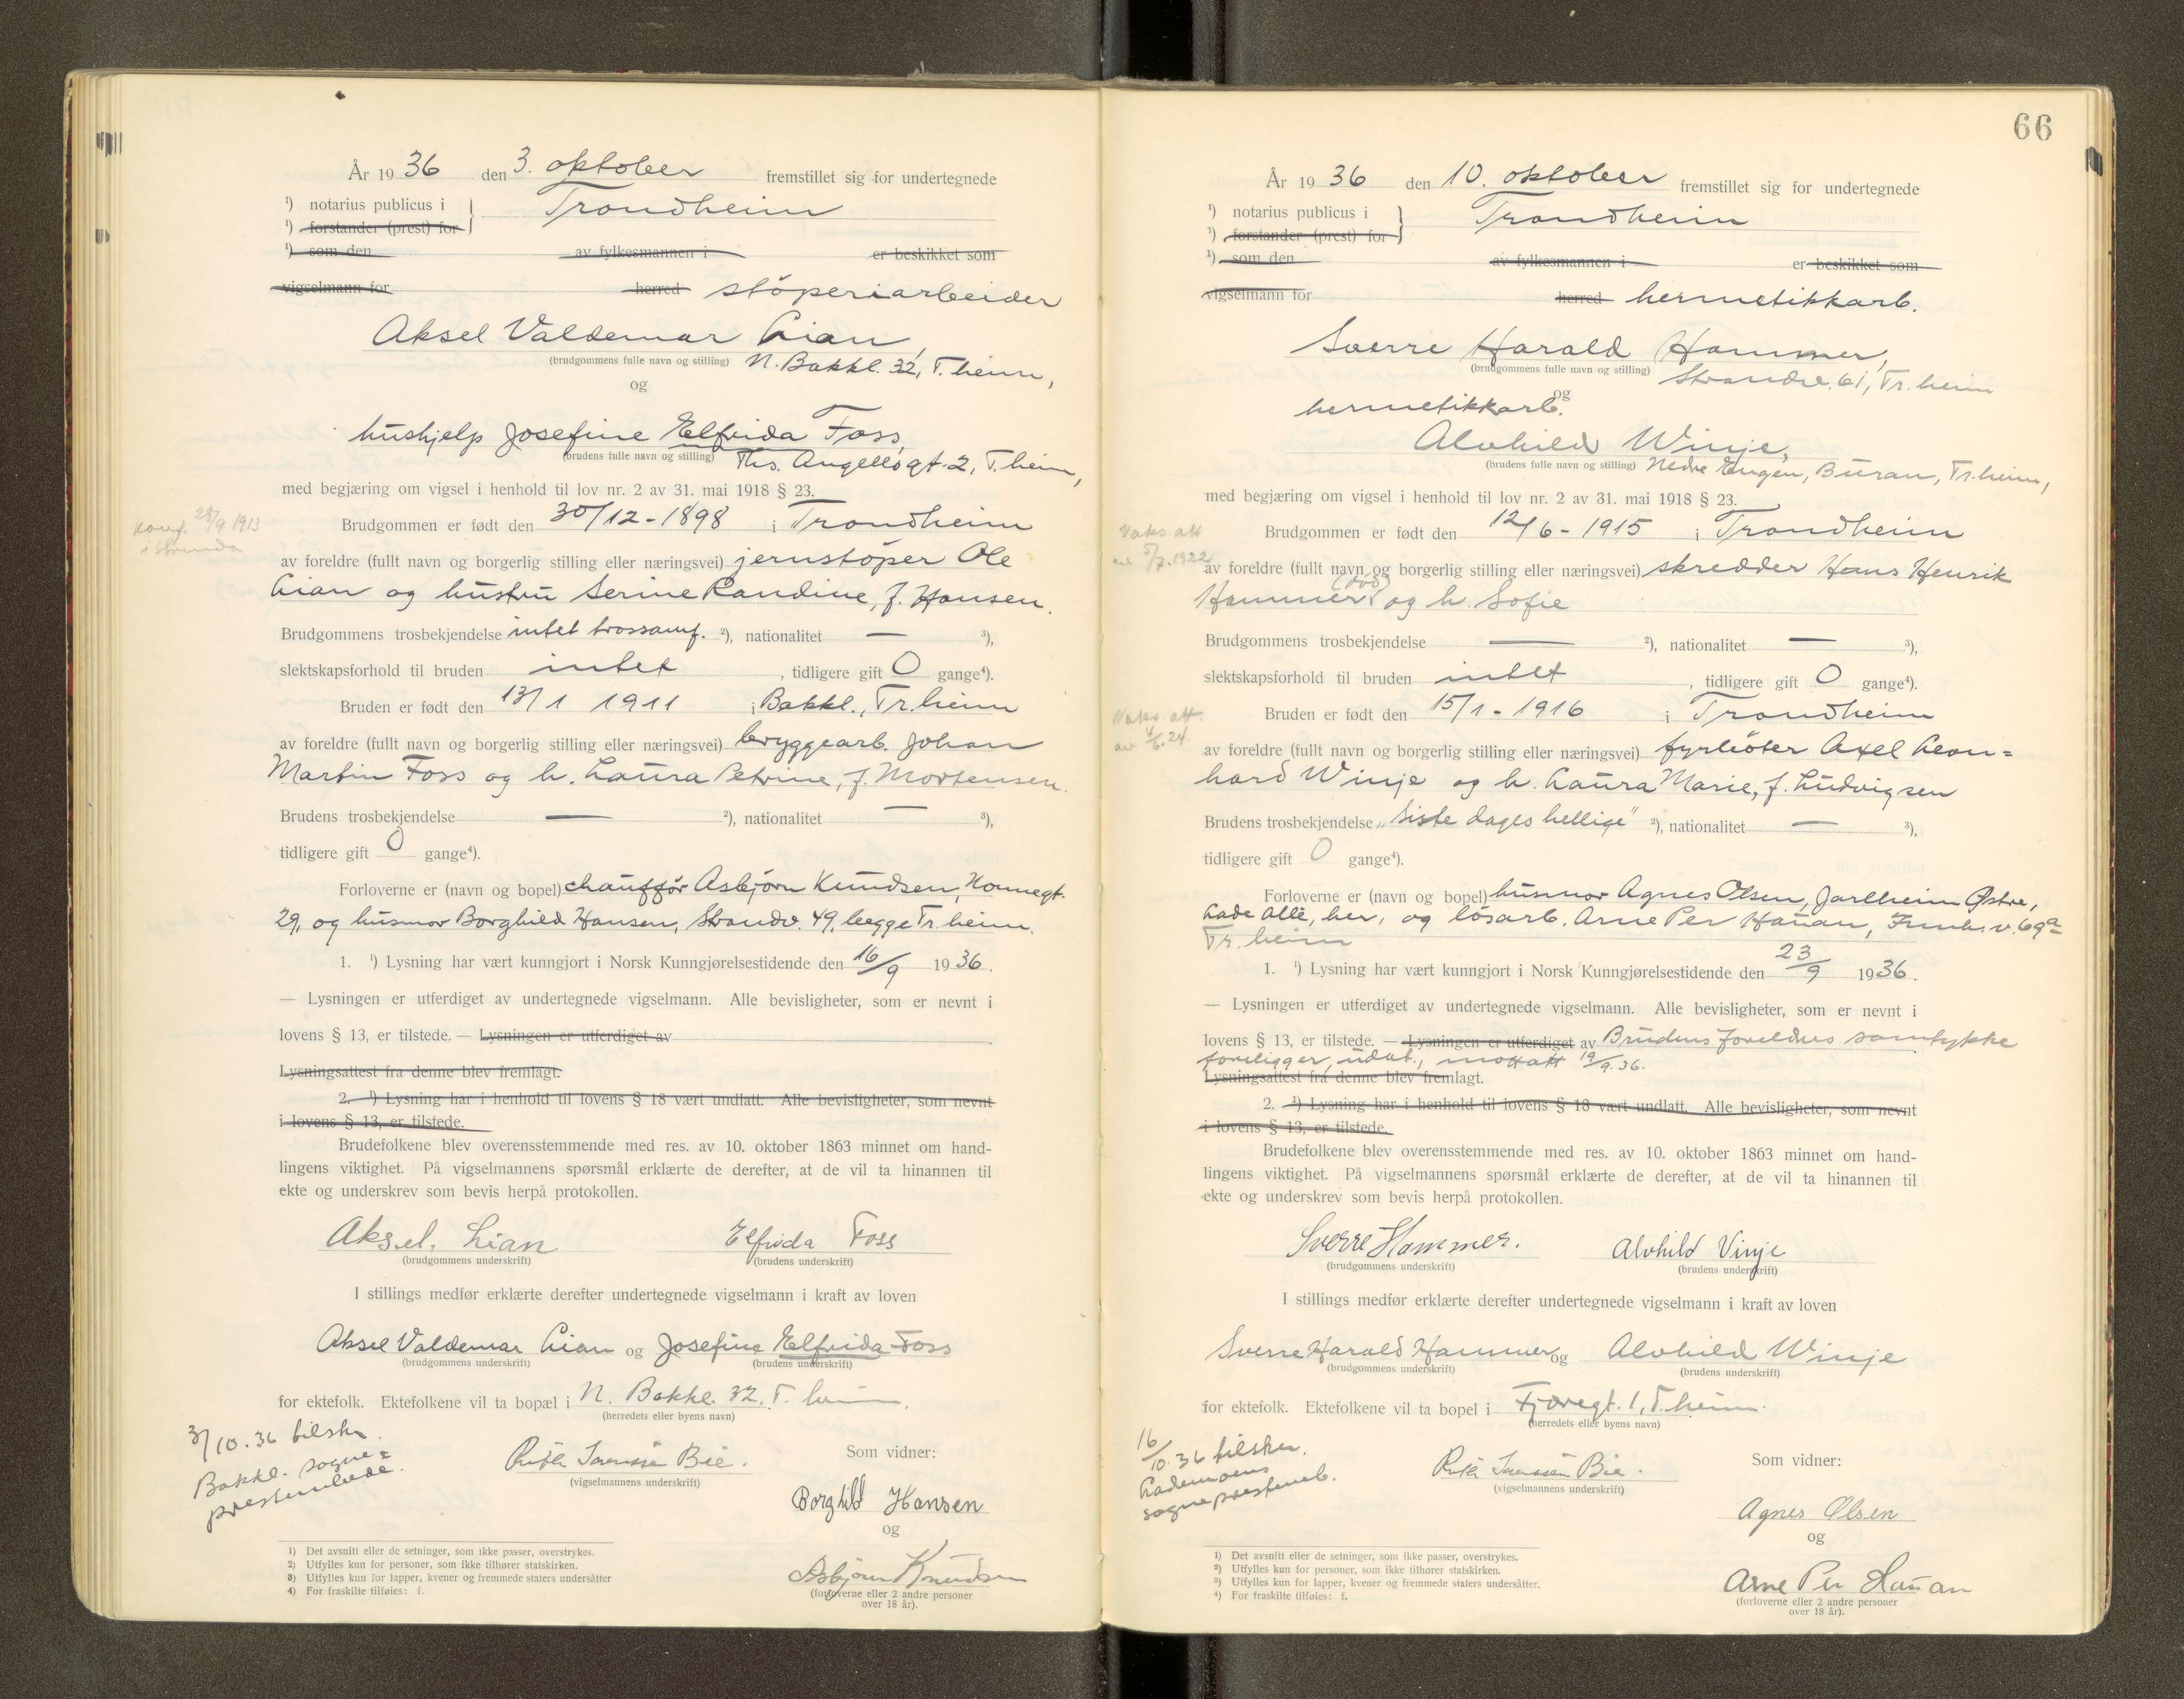 År 1936 den 3. oktober fremstillet sig for undertegnede
¹) notarius publicus i } Trondheim
¹) forstander (prest) for
¹) som den av fylkesmannen i er beskikket som
vigselmann for herred støperiarbeider
Aksel Valdemar Lian,
(brudgommens fulle navn og stilling) N. Bakkl. 32, T.heim,
og
hushjelp Josefine Elfrida Foss,
(brudens fulle navn og stilling) Ths. Angells gt. 2, T.heim,
med begjæring om vigsel i henhold til lov nr. 2 av 31. mai 1918 § 23.
konf. 28/9 1913
i Strinda
Brudgommen er født den 30/12-1898 i Trondheim
av foreldre (fullt navn og borgerlig stilling eller næringsvei) jernstøper Ole
Lian og hustru Serine Randine, f. Hansen.
Brudgommens trosbekjendelse intet trossamf. ²), nationalitet — ³),
slektskapsforhold til bruden intet, tidligere gift 0 gange⁴).
Bruden er født den 13/1 1911 i Bakkl., Tr.heim
av foreldre (fullt navn og borgerlig stilling eller næringsvei) bryggearb. Johan
Martin Foss og h. Laura Petrine, f. Mortensen.
Brudens trosbekjendelse — ²), nationalitet — ³),
tidligere gift 0 gange⁴).
Forloverne er (navn og bopel) chauffør Asbjørn Knudsen, Nonnegt.
29, og husmor Borghild Hansen, Strandv. 49, begge Tr.heim.
1. ¹) Lysning har vært kunngjort i Norsk Kunngjørelsestidende den 16/9 1936.
— Lysningen er utferdiget av undertegnede vigselmann. Alle bevisligheter, som er nevnt i
lovens § 13, er tilstede. — Lysningen er utferdiget av
Lysningsattest fra denne blev fremlagt.
2. ¹) Lysning har i henhold til lovens § 18 vært undlatt. Alle bevisligheter, som nevnt
i lovens § 13, er tilstede.
Brudefolkene blev overensstemmende med res. av 10. oktober 1863 minnet om hand-
lingens viktighet. På vigselmannens spørsmål erklærte de derefter, at de vil ta hinannen til
ekte og underskrev som bevis herpå protokollen.
Aksel Lian Elfrida Foss
(brudgommens underskrift) (brudens underskrift)
I stillings medfør erklærte derefter undertegnede vigselmann i kraft av loven
Aksel Valdemar Lian og Josefine Elfrida Foss
(brudgommens underskrift) (brudens underskrift)
for ektefolk. Ektefolkene vil ta bopæl i N. Bakkl. 32, T.heim.
(herredets eller byens navn)
3/10.36 tilskr.
Bakkl. sogne=
prestembede.
Som vidner:
(vigselmannens underskrift)
Borghild Hansen
og
Asbjørn Knudsen
(forloverne eller 2 andre personer
over 18 år).
1) Det avsnitt eller de setninger, som ikke passer, overstrykes.
2) Utfylles kun for personer, som ikke tilhører statskirken.
3) Utfylles kun for lapper, kvener og fremmede staters undersåtter
4) For fraskilte tilføies: f.
66
År 1936 den 10. oktober fremstillet sig for undertegnede
¹) notarius publicus i } Trondheim
¹) forstander (prest) for
¹) som den av fylkesmannen i er beskikket som
vigselmann for herred hermetikkarb.
Sverre Harald Hammer,
(brudgommens fulle navn og stilling) Strandv. 61, Tr.heim
og
hermetikkarb.
Alvhild Winje,
(brudens fulle navn og stilling) Nedre Engen, Buran, Tr.heim,
med begjæring om vigsel i henhold til lov nr. 2 av 31. mai 1918 § 23.
Vaks att
av 5/7.1922
Brudgommen er født den 12/6-1915 i Trondheim
av foreldre (fullt navn og borgerlig stilling eller næringsvei) skredder Hans Henrik
Hammer (død) og h. Sofie
Brudgommens trosbekjendelse — ²), nationalitet — ³),
slektskapsforhold til bruden intet, tidligere gift 0 gange⁴).
Vaks. att.
av 4/6.24.
Bruden er født den 15/1-1916 i Trondheim
av foreldre (fullt navn og borgerlig stilling eller næringsvei) fyrbøter Axel Leon=
hard Winje og h. Laura Marie, f. Ludvigsen
Brudens trosbekjendelse „Siste dages hellige" ²), nationalitet — ³),
tidligere gift 0 gange⁴).
Forloverne er (navn og bopel) husmor Agnes Olsen, Jarlheim Østre,
Lade Allé, her, og løsarb. Arne Per Hauan, v. 69a
Tr.heim
1. ¹) Lysning har vært kunngjort i Norsk Kunngjørelsestidende den 23/9 1936.
— Lysningen er utferdiget av undertegnede vigselmann. Alle bevisligheter, som er nevnt i
lovens § 13, er tilstede. — Lysningen er utferdiget av Brudens foreldres samtykke
foreligger, udat., mottatt 19/9.36.
Lysningsattest fra denne blev fremlagt.
2. ¹) Lysning har i henhold til lovens § 18 vært undlatt. Alle bevisligheter, som nevnt
i lovens § 13, er tilstede.
Brudefolkene blev overensstemmende med res. av 10. oktober 1863 minnet om hand-
lingens viktighet. På vigselmannens spørsmål erklærte de derefter, at de vil ta hinannen til
ekte og underskrev som bevis herpå protokollen.
Sverre Hammer. Alvhild Vinje
(brudgommens underskrift) (brudens underskrift)
I stillings medfør erklærte derefter undertegnede vigselmann i kraft av loven
Sverre Harald Hammer og Alvhild Winje
(brudgommens underskrift) (brudens underskrift)
for ektefolk. Ektefolkene vil ta bopel i Fjæregt. 1, T.heim.
(herredets eller byens navn)
16/10.36 tilskr.
Lademoens
sogneprestemb.
Som vidner:
(vigselmannens underskrift)
Agnes Olsen
og
Arne Per Hauan
(forloverne eller 2 andre personer
over 18 år).
1) Det avsnitt eller de setninger, som ikke passer, overstrykes.
2) Utfylles kun for personer, som ikke tilhører statskirken.
3) Utfylles kun for lapper, kvener og fremmede staters undersåtter.
4) For fraskilte tilføies: f.